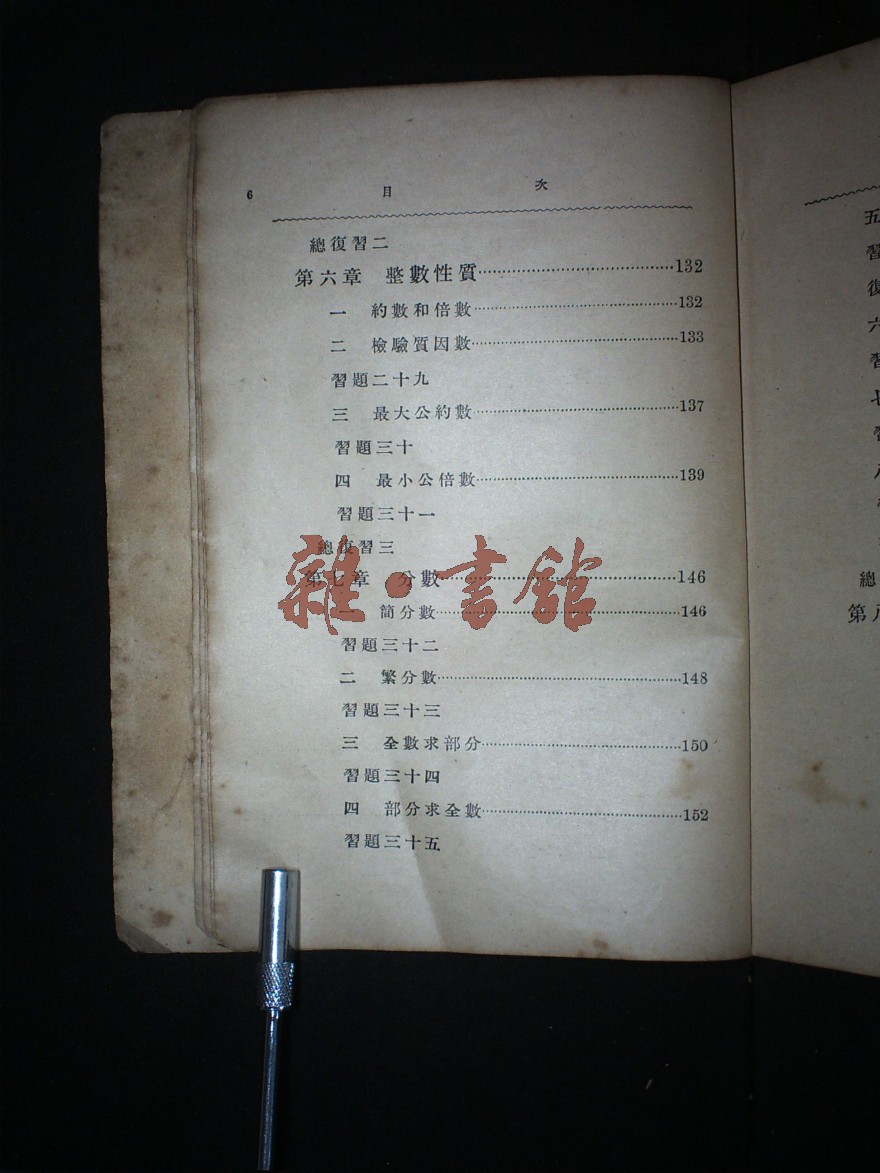 6 目 次
總復習二
第六章 整數性質 132
一 約數和倍數 132
二 檢驗質因數 133
習題二十九
三 最大公約數 137
習題三十
四 最小公倍數 139
習題三十一
總復習三
第七章 分數 146
一 簡分數 146
習題三十二
二 繁分數 148
習題三十三
三 全數求部分 150
習題三十四
四 部分求全數 152
習題三十五
雜·書館
五
習
復
六
習
七
總
第八